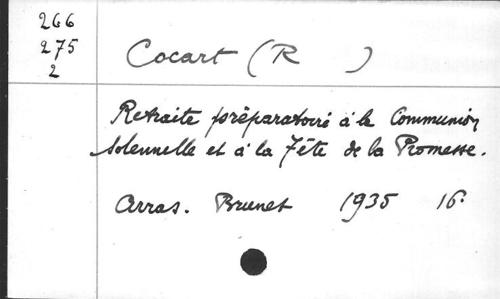 266
275
2
Cocart (R )
Retraite préparatoire à la Communion
Solennelle et à la Fête de la Promesse.
Arras. Brunet 1935 16°